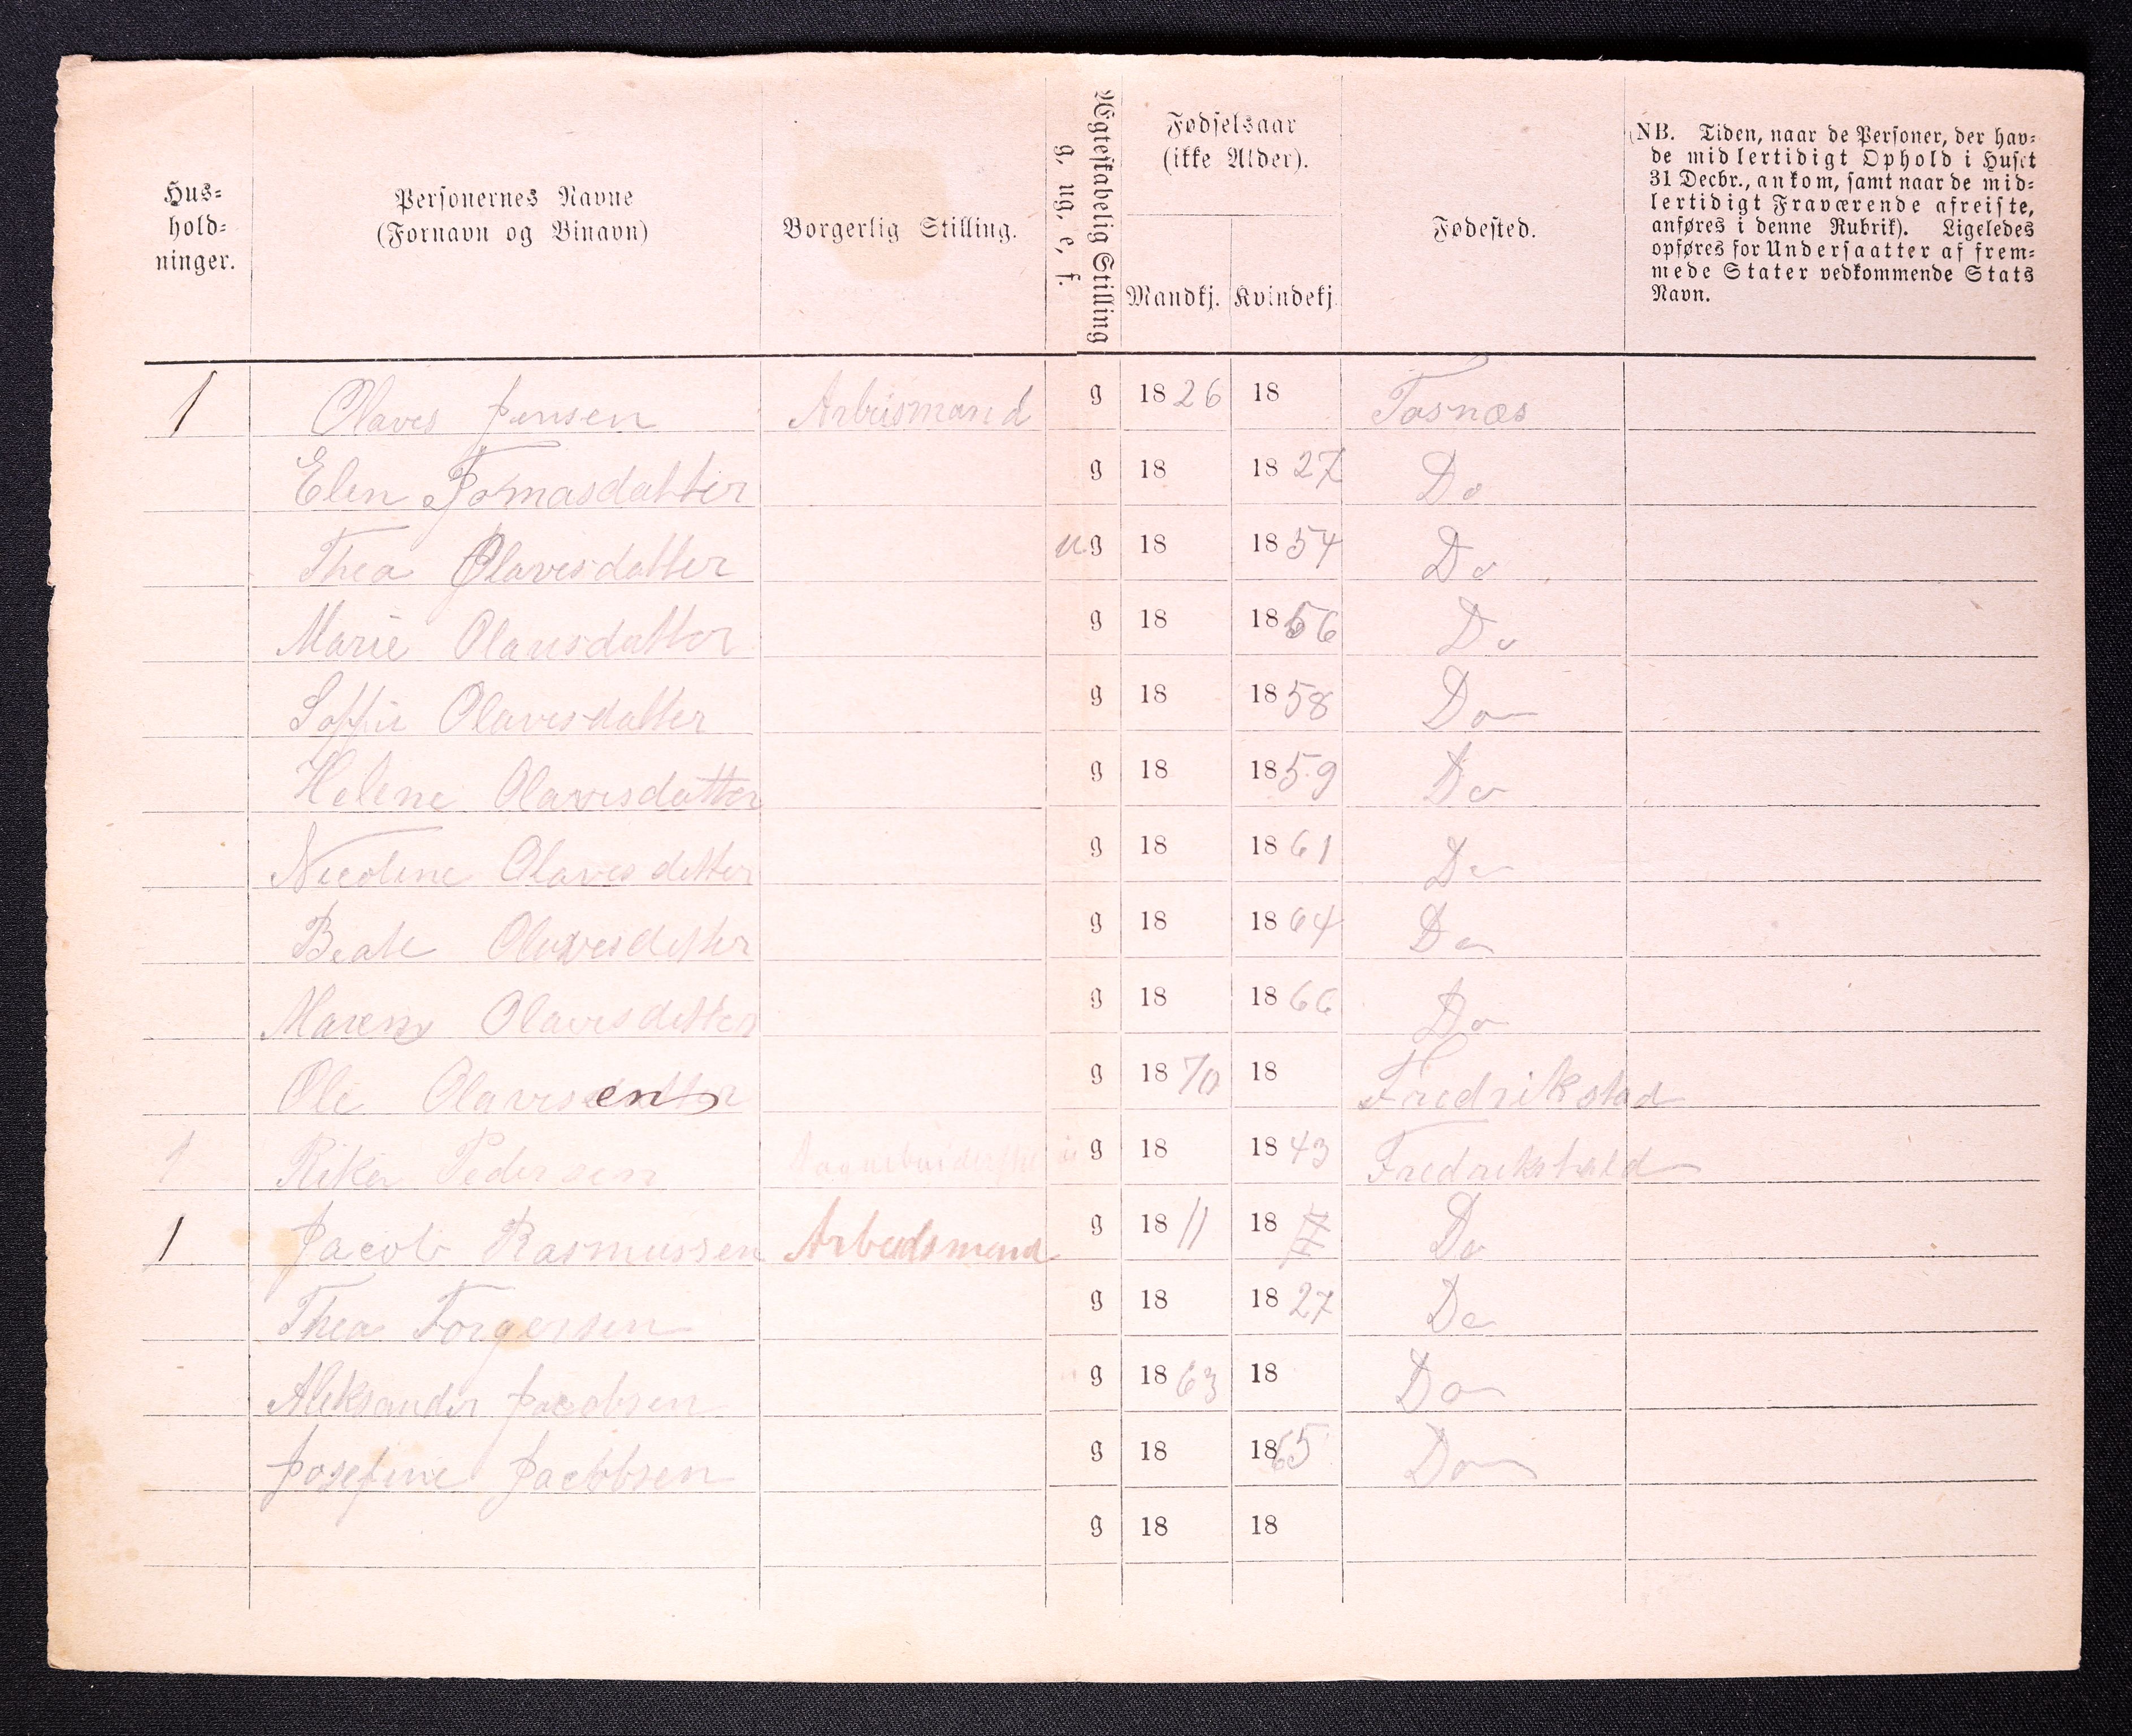 Hus=
hold=
ninger.
Personernes Navne
(Fornavn og Binavn)
Borgerlig Stilling.
Ægteskabelig Stilling
g, ug, e, f.
Fødselsaar
(ikke Alder).
Mandkj.
Kvindekj.
Fødested.
(NB. Tiden, naar de Personer, der hav=
de midlertidigt Ophold i Huset
31 Decbr., ankom, samt naar de mid=
lertidigt Fraværende afreiste,
anføres i denne Rubrik). Ligeledes
opføres for Undersaatter af frem=
mede Stater vedkommende Stats
Navn.
1 Olaves Jensen Arbeismand g 1826 18 Tosnæs
Elen Tomasdatter g 18 1827 Do
Thea Olavesdatter u.g 18 1854 Do
Marie Olavesdatter g 18 1856 Do
Soffie Olavesdatter g 18 1858 Do
Helene Olavesdatter g 18 1859 Do
Nicoline Olavesdatter g 18 1861 Do
Beate Olavesdatter g 18 1864 Do
Maren Olavesdatter g 18 1866 Do
Ole Olavesen g 1870 18 Fredrikstad
1 Rikea Pedersen g 18 1843 Fredrikshald
1 Jacob Rasmussen Arbeidsmand g 1811 18 Do
Thea Torgersen g 18 1827 Do
Aleksander Jacobsen g 1863 18 Do
Josefine Jacobsen g 18 1865 Do
g 18 18